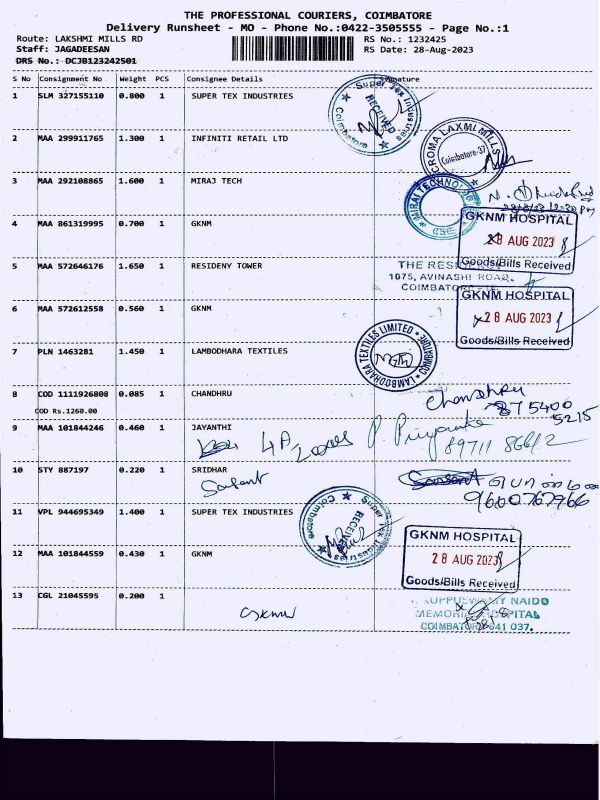 THE PROFESSIONAL COURIERS, COIMBATORE
Delivery Runsheet - MO - Phone No.:0422-3505555 - Page No.:1
Route: LAKSHMI MILLS RD RS No.: 1232425
Staff: JAGADEESAN RS Date: 28-Aug-2023
DRS No.: DCJB123242501
S No Consignment No Weight PCS Consignee Details Signature
1 SLM 327155110 0.800 1 SUPER TEX INDUSTRIES
Super Tex Industries Coimbatore RECEIVED
2 MAA 299911765 1.300 1 INFINITI RETAIL LTD
CROMA LAXMI MILLS Coimbatore-37
3 MAA 292108865 1.600 1 MIRAJ TECH
4 MAA 861319995 0.700 1 GKNM
GKNM HOSPITAL
28 AUG 2023
Goods/Bills Received
5 MAA 572646176 1.650 1 RESIDENY TOWER
1075, AVINASHI ROAD,
6 MAA 572612558 0.560 1 GKNM
GKNM HOSPITAL
28 AUG 2023
Goods/Bills Received
7 PLN 1463281 1.450 1 LAMBODHARA TEXTILES
LAMBODHARA TEXTILES LIMITED COIMBATORE
8 COD 1111926808 0.085 1 CHANDHRU
COD Rs.1260.00
Chandhru
875400
5215
9 MAA 101844246 0.460 1 JAYANTHI
P. Priyanka
10 STY 887197 0.220 1 SRIDHAR
9600767966
11 VPL 944695349 1.400 1 SUPER TEX INDUSTRIES
Super Tex Industries Coimbatore RECEIVED
12 MAA 101844559 0.430 1 GKNM
GKNM HOSPITAL
28 AUG 2023
Goods/Bills Received
13 CGL 21045595 0.200 1
GKNM
NAIDU